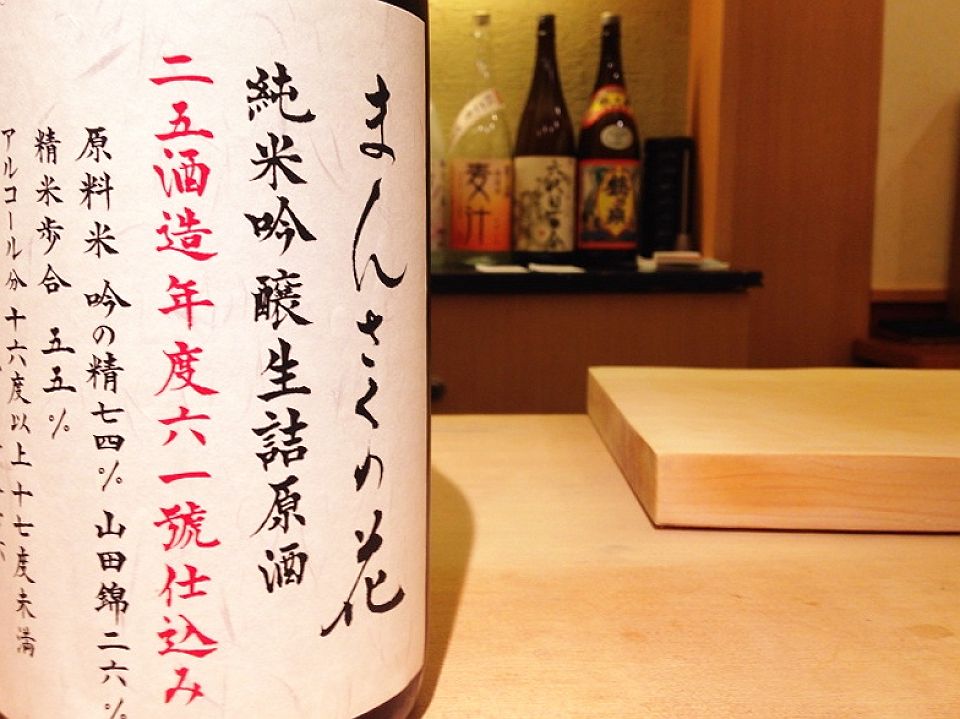 まんさくの花
純米吟醸生詰原酒
二五酒造年度六一號仕込み
原料米 吟の精七四% 山田錦二六%
精米歩合 五五%
アルコール分十六度以上十七度未満
麦汁